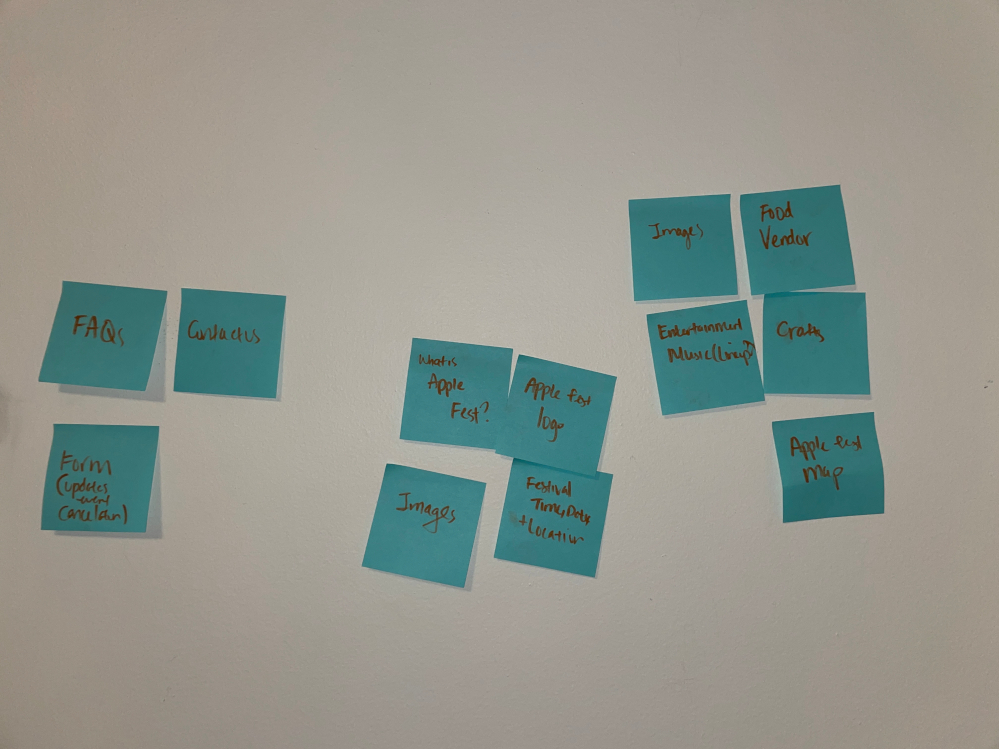 FAQs
Contact us
Form
(updates
event
What is
Apple
Fest?
Apple fest
logo
Images
Festival
Time, Date
+ Location
Images
Food
Vendor
Entertainment
Music (Lineup)
Crafts
Apple fest
Map